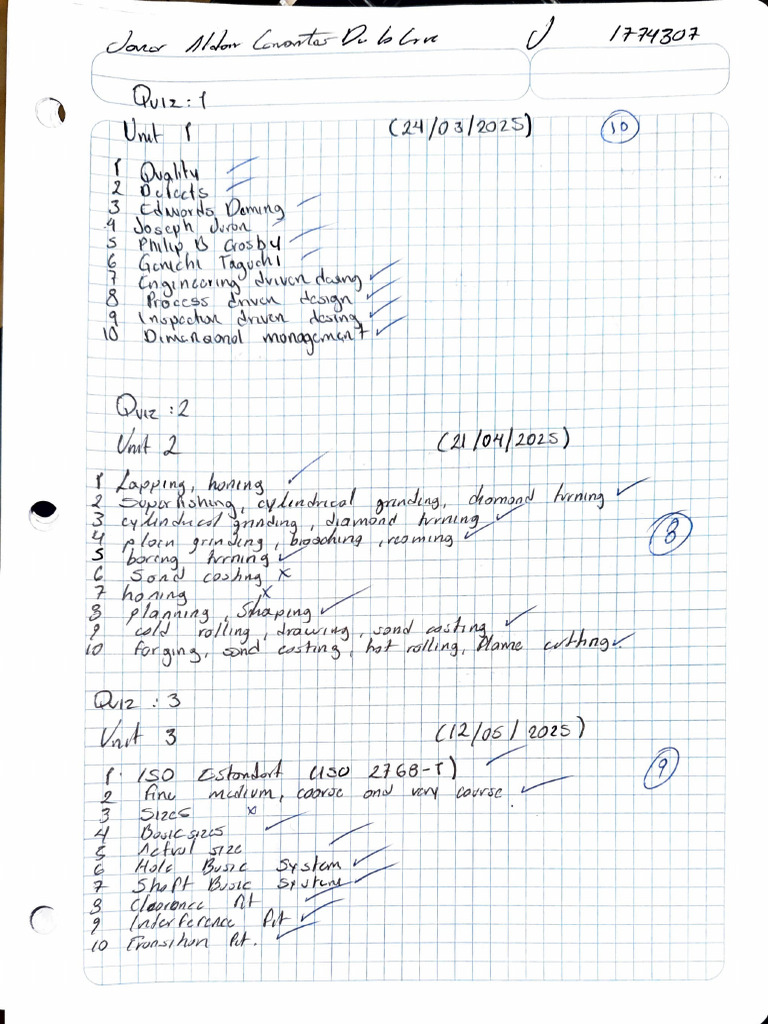 1774307
Quiz:1
Unit 1 (24/03/2025) 10
1 Quality
2 Defects
3 Edwards Deming
4 Joseph Juron
5 Philip B Crosby
6 Genichi Taguchi
7 Engineering driven desing
8 Process driven design
9 Inspection driven desing
10 Dimensional management
Quiz :2
Unit 2 (21/04/2025)
1 Lapping, honing
2 Superfishing, cylindrical grinding, diamond turning
3 cylindrical grinding, diamond turning
4 plain grinding, broaching, reaming
8
5 boring turning
6 Sand casting x
7 honing x
8 planning, Shaping
9 cold rolling, drawing, sand casting
10 forging, sand casting, hot rolling, flame cutting
Quiz : 3
Unit 3 (12/05/2025)
1. ISO Estandart (ISO 2768-1) 9
2 fine medium, coarse and very coarse.
3 Sizes x
4 Basic sizes
5 Actual size
6 Hole Basic System
7 Shaft Basic System
8 Clearance fit
9 Interference fit
10 Transition fit.